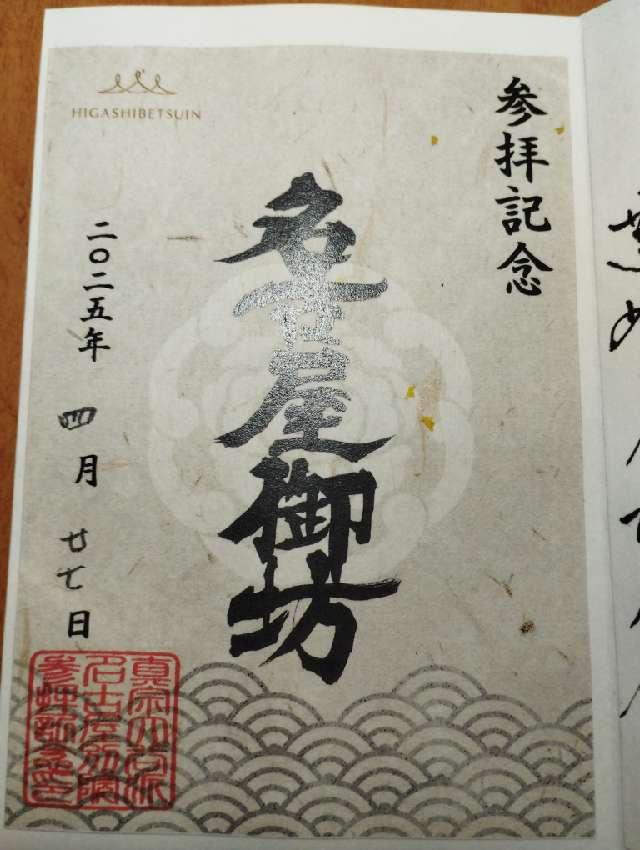 HIGASHIBETSUIN
参拝記念
名古屋御坊
二〇二五年 四月 廿七日
真宗大谷派
名古屋別院
参拝記念印